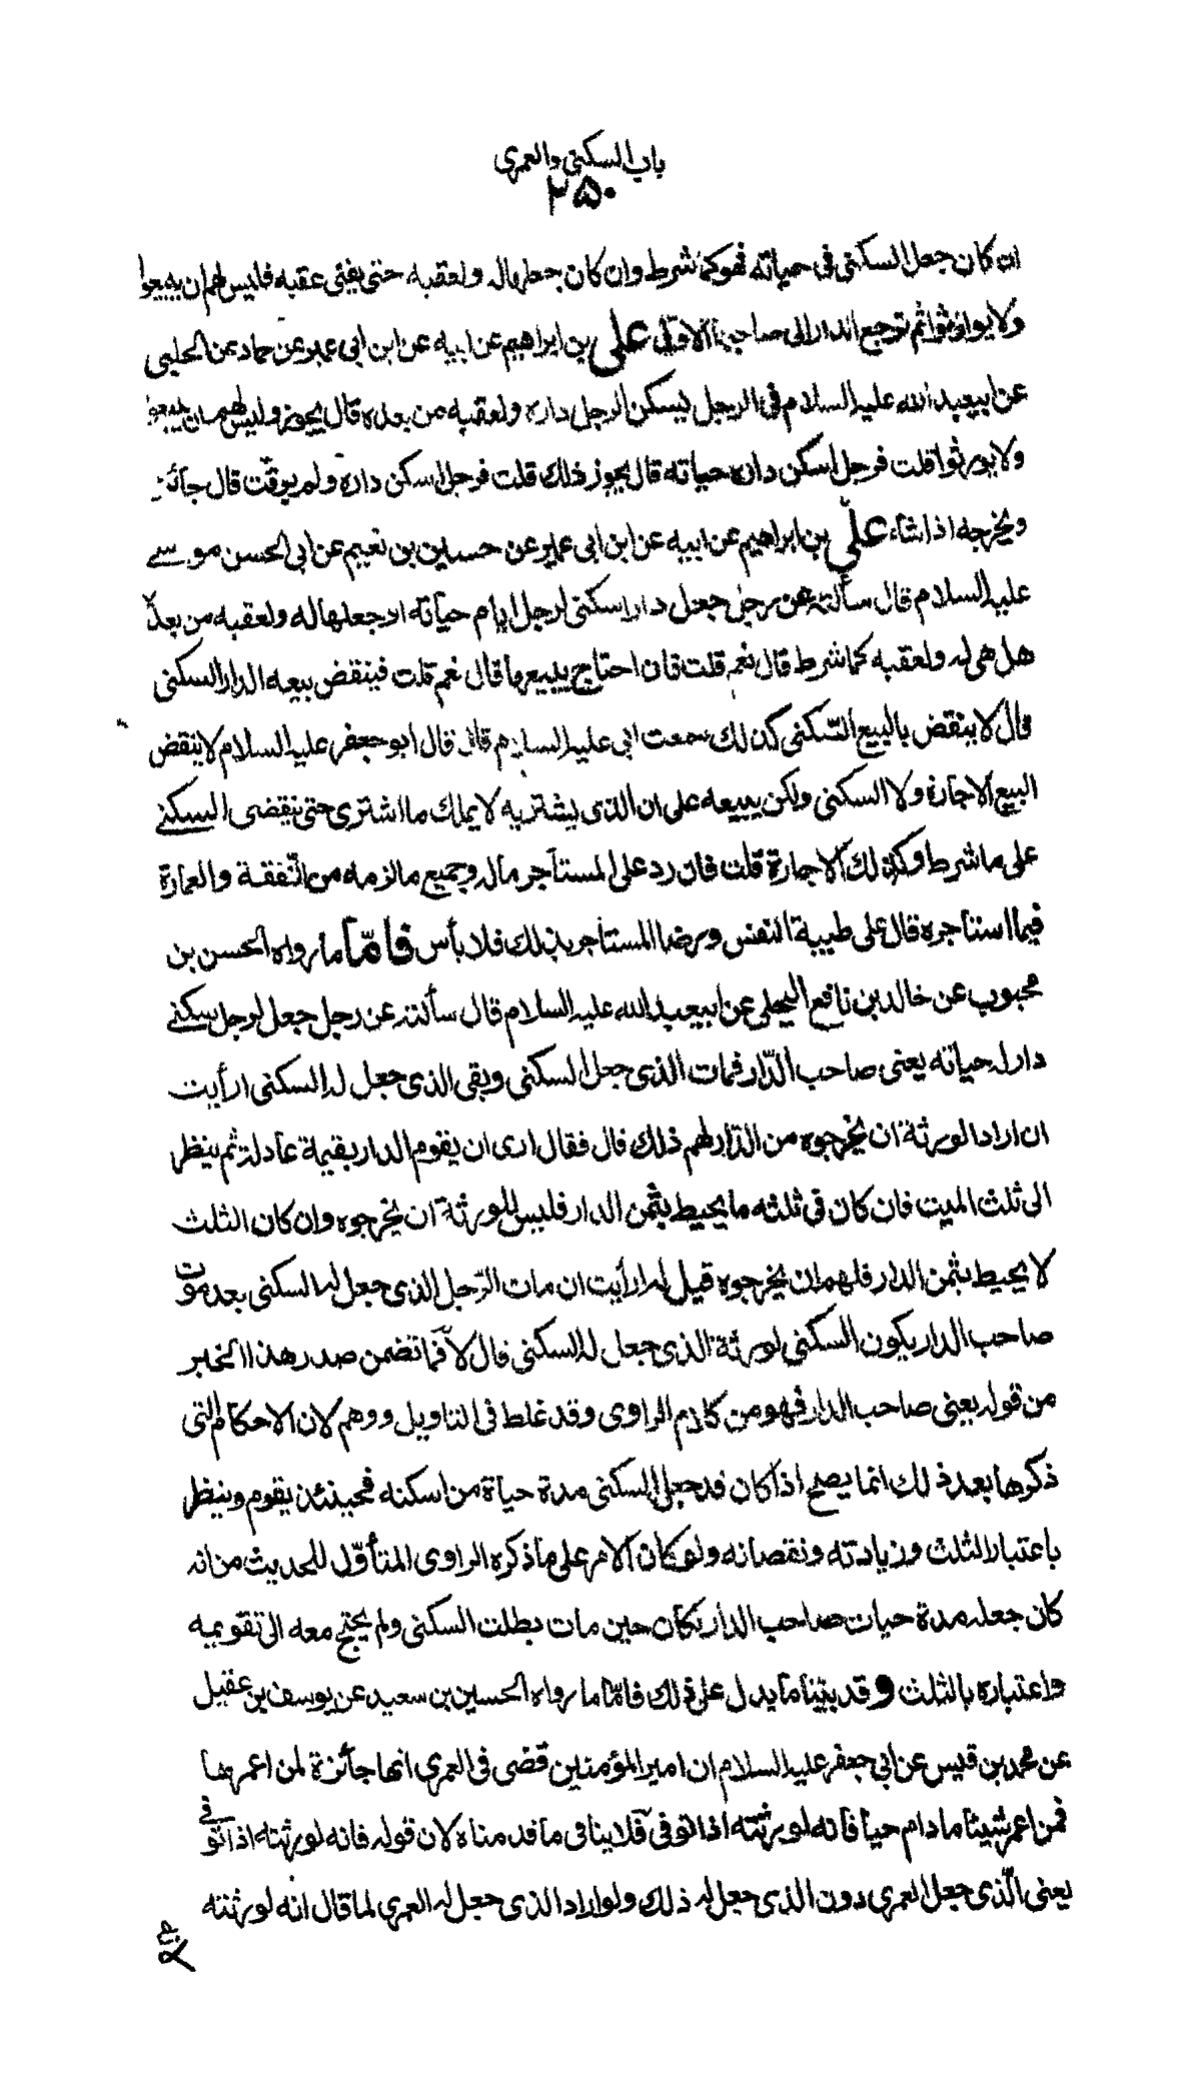 باب السكنى والعمرى
٢٥٠
ان كان جعل السكنى فى حياته فهو كما شرط وان كان جعلها له ولعقبه حتى يفنى عقبه فليس لهم ان يبيعوا
ولا يورثوا ثم ترجع الدار الى صاحبها الاول على بن ابراهيم عن ابيه عن ابن ابى عمير عن حماد عن الحلبى
عن ابيعبد الله عليه السلام فى الرجل يسكن الرجل داره ولعقبه من بعده قال يجوز وليس لهم ان يبيعوا
ولا يورثوا قلت فرجل اسكن داره حياته قال يجوز ذلك قلت فرجل اسكن داره ولم يوقت قال جائز
ويخرجه اذا شاء علىّ بن ابراهيم عن ابيه عن ابن ابى عمير عن حسين بن نعيم عن ابى الحسن موسى
عليه السلام قال سألته عن رجل جعل دار اسكنى لرجل ايام حياته او جعلها له ولعقبه من بعده
هل هى له ولعقبه كما شرط قال نعم قلت فان احتاج يبيعها قال نعم قلت فينقض بيعه الدار السكنى
قال لا ينقض بالبيع السّكنى كذلك سمعت ابى عليه السلام قال قال ابو جعفر عليه السلام لا ينقض
البيع الاجارة ولا السكنى ولكن يبيعه على ان الذى يشتريه لا يملك ما اشترى حتى ينقضى السكنى
على ما شرط وكذلك الاجارة قلت فان رد على المستأجر ماله وجميع ما لزمه من النّفقة والعمارة
فيما استأجره قال على طيبة النفس ورضا المستأجر بذلك فلا بأس فامّا ما رواه الحسن بن
محبوب عن خالد بن نافع البجلى عن ابيعبد الله عليه السلام قال سألته عن رجل جعل لرجل سكنى
دار له حياته يعنى صاحب الدّار فمات الذى جعل السكنى وبقى الذى جعل له السكنى ارأيت
ان اراد الورثة ان يخرجوه من الدّار لهم ذلك قال فقال ارى ان يقوم الدار بقيمة عادلة ثم ينظر
الى ثلث الميت فان كان فى ثلثه ما يحيط بثمن الدار فليس للورثة ان يخرجوه وان كان الثلث
لا يحيط بثمن الدار فلهم ان يخرجوه قيل له ارأيت ان مات الرّجل الذى جعل له السكنى بعد موت
صاحب الدار يكون السكنى لورثة الذى جعل له السكنى قال لا فما تضمن صدر هذا الخبر
من قوله يعنى صاحب الدار فهو من كلام الراوى وقد غلط فى التاويل ووهم لان الاحكام التى
ذكرها بعد ذلك انما يصح اذا كان قد جعل السكنى مدة حياة من اسكنه فحينئذ يقوم وينظر
باعتبار الثلث وزيادته ونقصانه ولو كان الامر على ما ذكره الراوى المتأوّل للحديث من انه
كان جعله مدة حيات صاحب الدار لكان حين مات بطلت السكنى ولم يحتج معه الى تقويمه
واعتباره بالثلث وقد بيّنا ما يدل على ذلك فامّا ما رواه الحسين بن سعيد عن يوسف بن عقيل
عن محمد بن قيس عن ابى جعفر عليه السلام ان امير المؤمنين قضى فى العمرى انها جآئزة لمن اعمرها
فمن اعمر شيئا ما دام حيا فانه لورثته اذا توفى فلا ينافى ما قدمناه لان قوله فانه لورثته اذا توفى
يعنى الّذى جعل العمرى دون الذى جعل له ذلك ولو اراد الذى جعل له العمرى لما قال انه لورثته